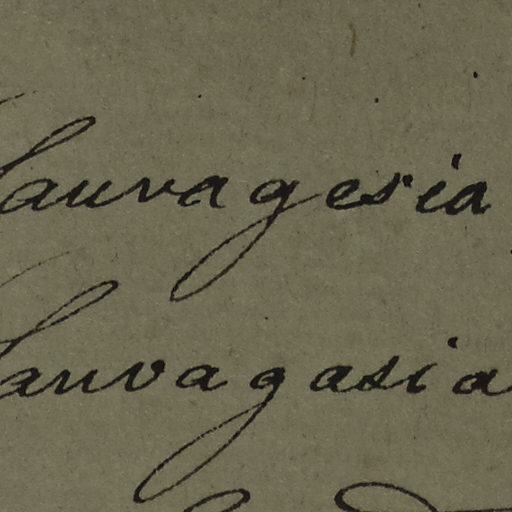 Sauvagesia
Sauvagasia